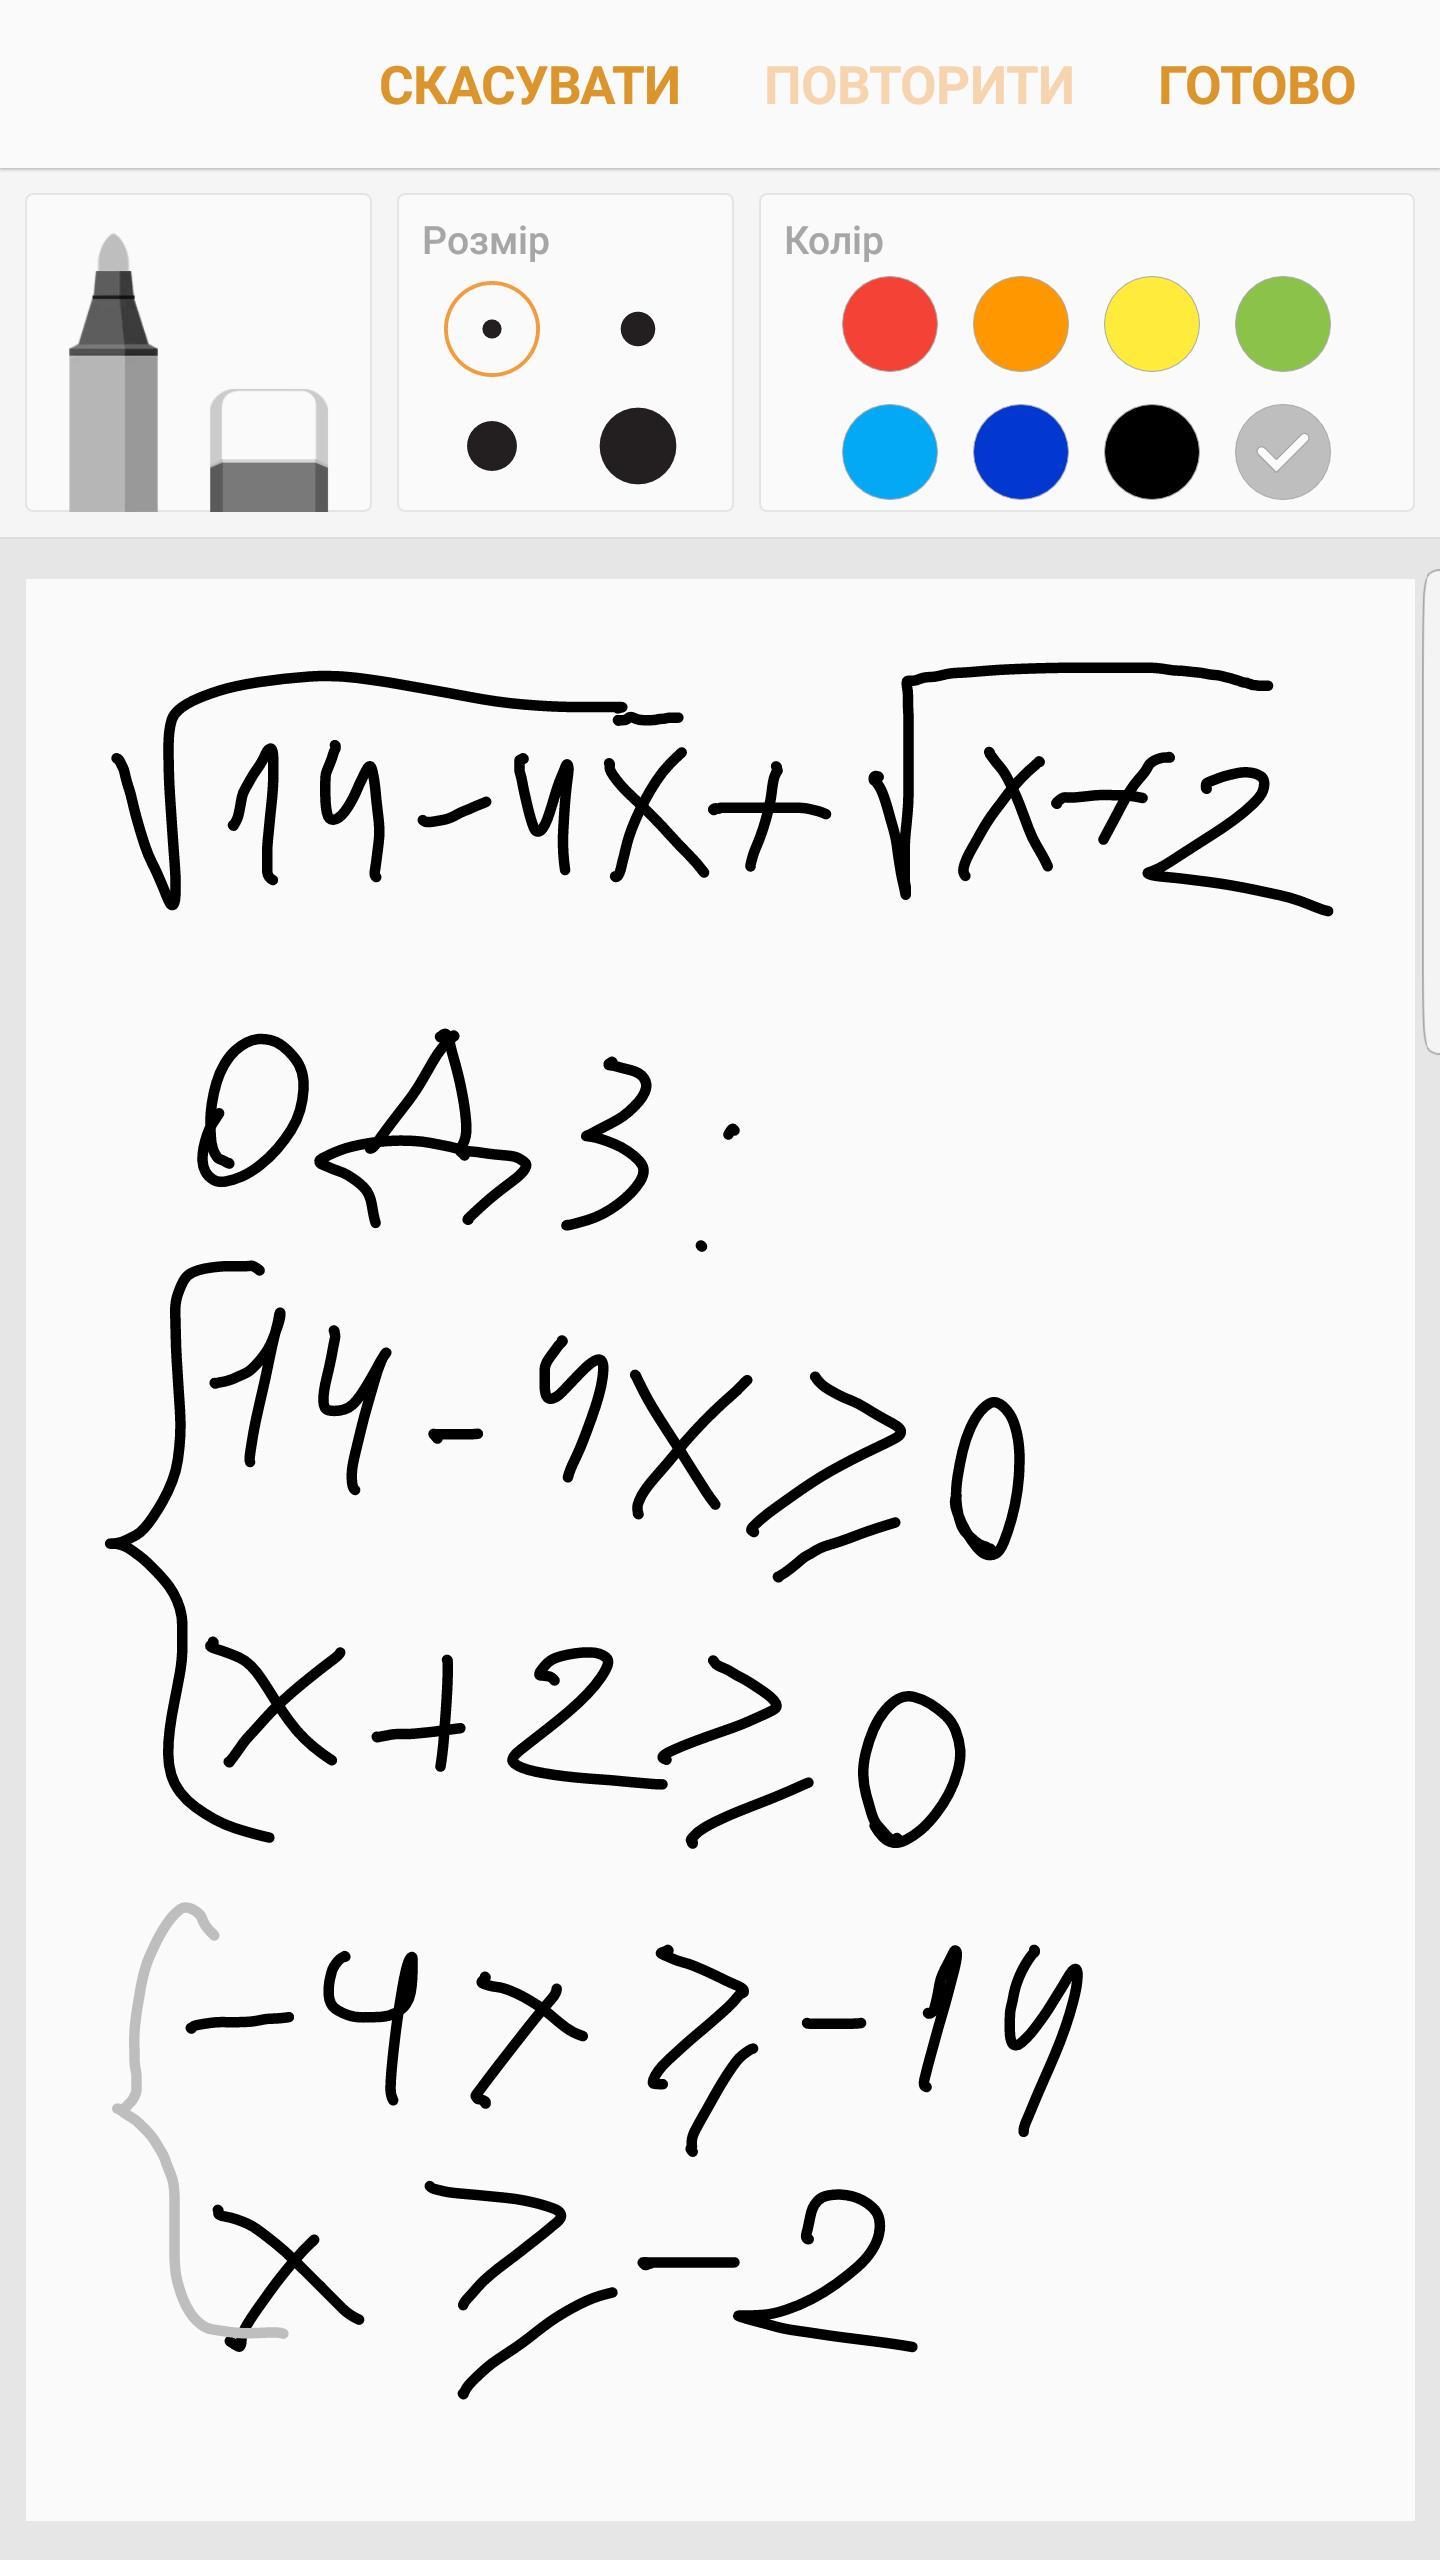 СКАСУВАТИ ПОВТОРИТИ ГОТОВО
Розмір Колір
√14-4x+√x+2
ОДЗ:
14-4x≥0
x+2≥0
-4x≥-14
x≥-2